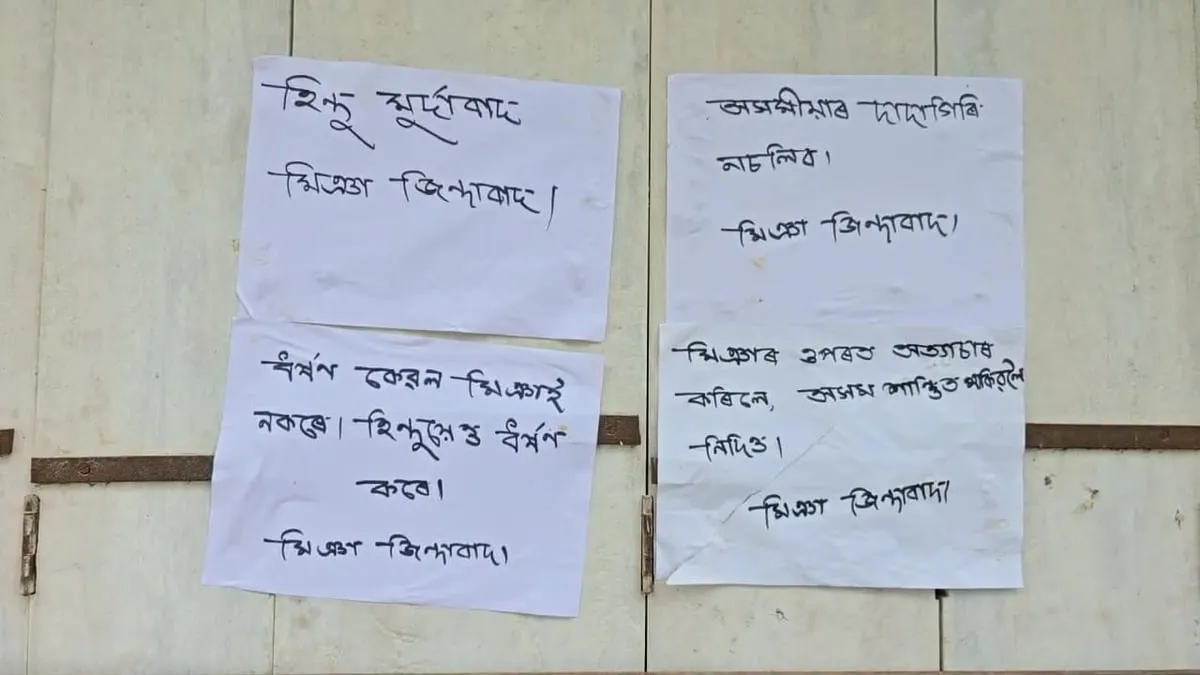 হিন্দু মুৰ্দ্দাবাদ
মিঞা জিন্দাবাদ।
ধৰ্ষণ কেৱল মিঞাই
নকৰে। হিন্দুয়েও ধৰ্ষণ
কৰে।
মিঞা জিন্দাবাদ।
অসমীয়াৰ দাদাগিৰি
নচলিব।
মিঞা জিন্দাবাদ।
মিঞাৰ ওপৰত অত্যাচাৰ
কৰিলে, অসম শান্তিত থাকিবলৈ
নিদিওঁ।
মিঞা জিন্দাবাদ।